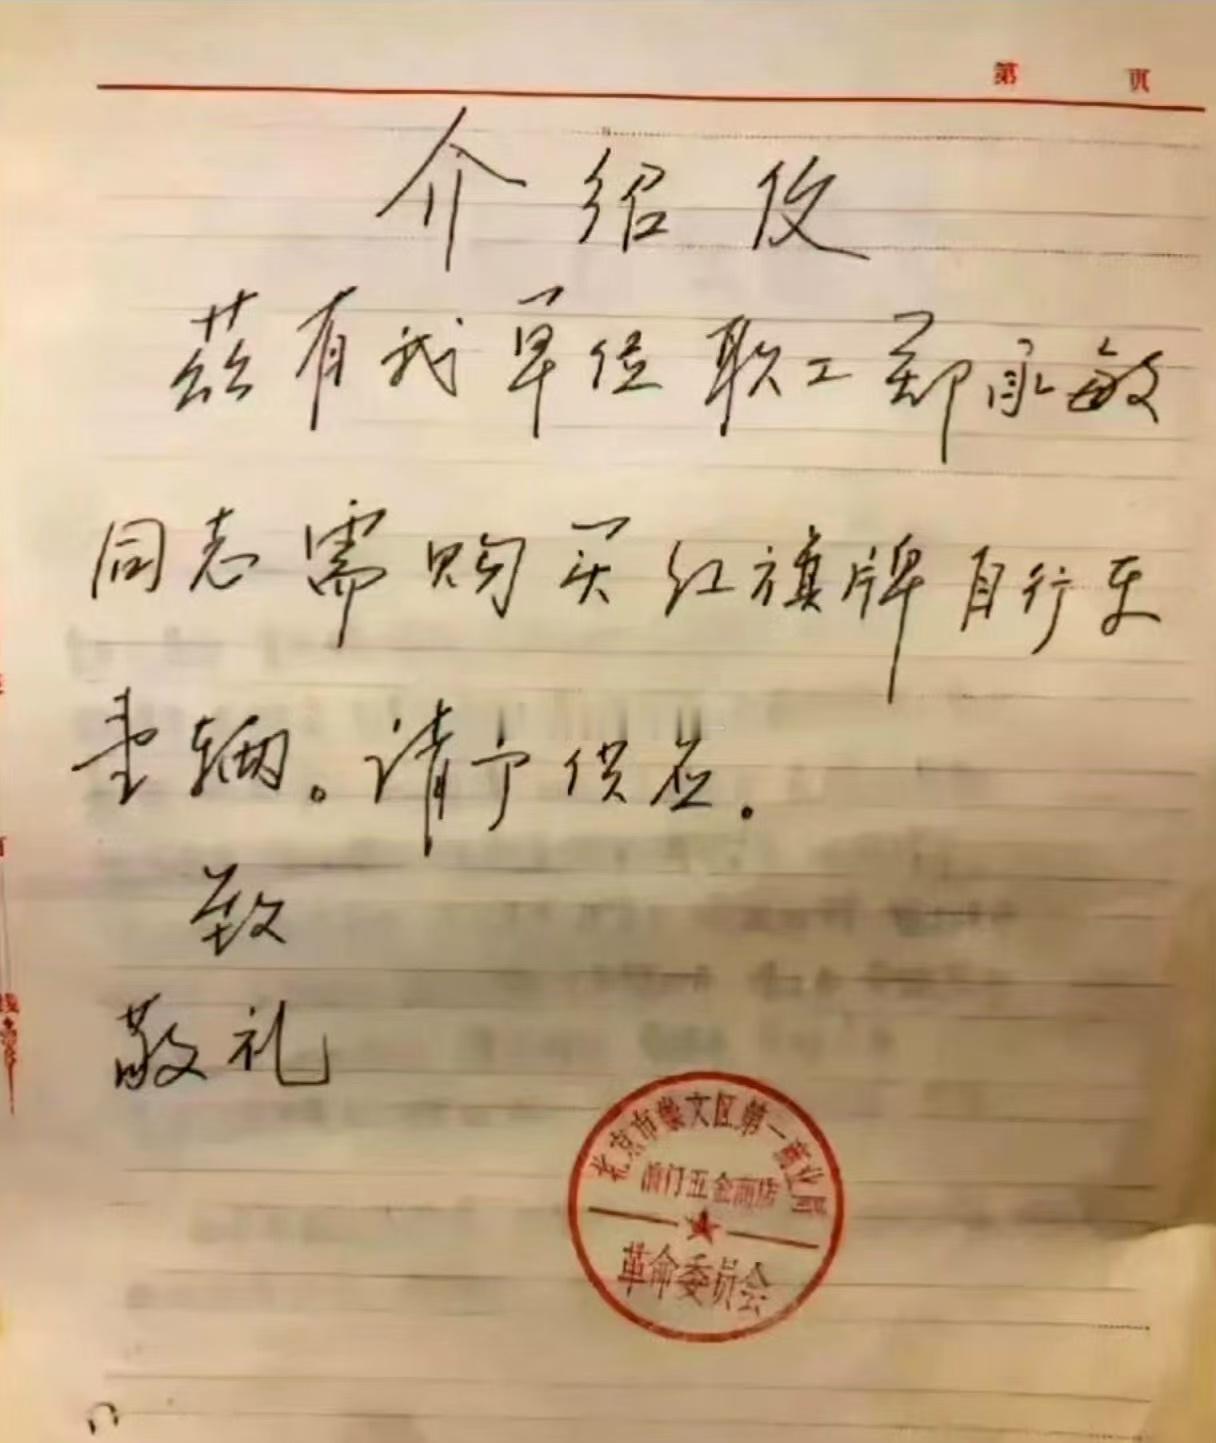 第 页
介绍伩
兹有我单位职工郑永敏
同志需购买红旗牌自行车
壹辆。请予供应.
致
敬礼
北京市崇文区第一商业局
前门五金商店
革命委员会